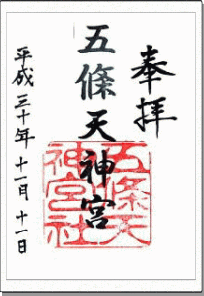 奉拝
五條天神宮
平成三十年十一月十一日
五條天
神宮社